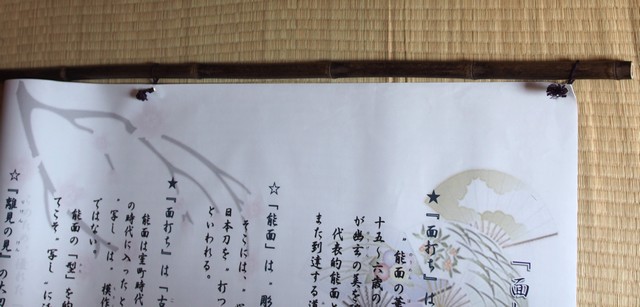 『面
★『面打ち』は
十五～六歳の
が幽玄の美を
代表的能面
また到達する
☆『能面』は〝彫
そこには、
日本刀を〝打つ
といわれる。
★『面打ち』は〝古
能面は室町時代
の時代に入ったと
〝写し〟は、模作
ではない。
能面の「型」を的
てこそ〝写し〟に
☆『離見の見』の大切